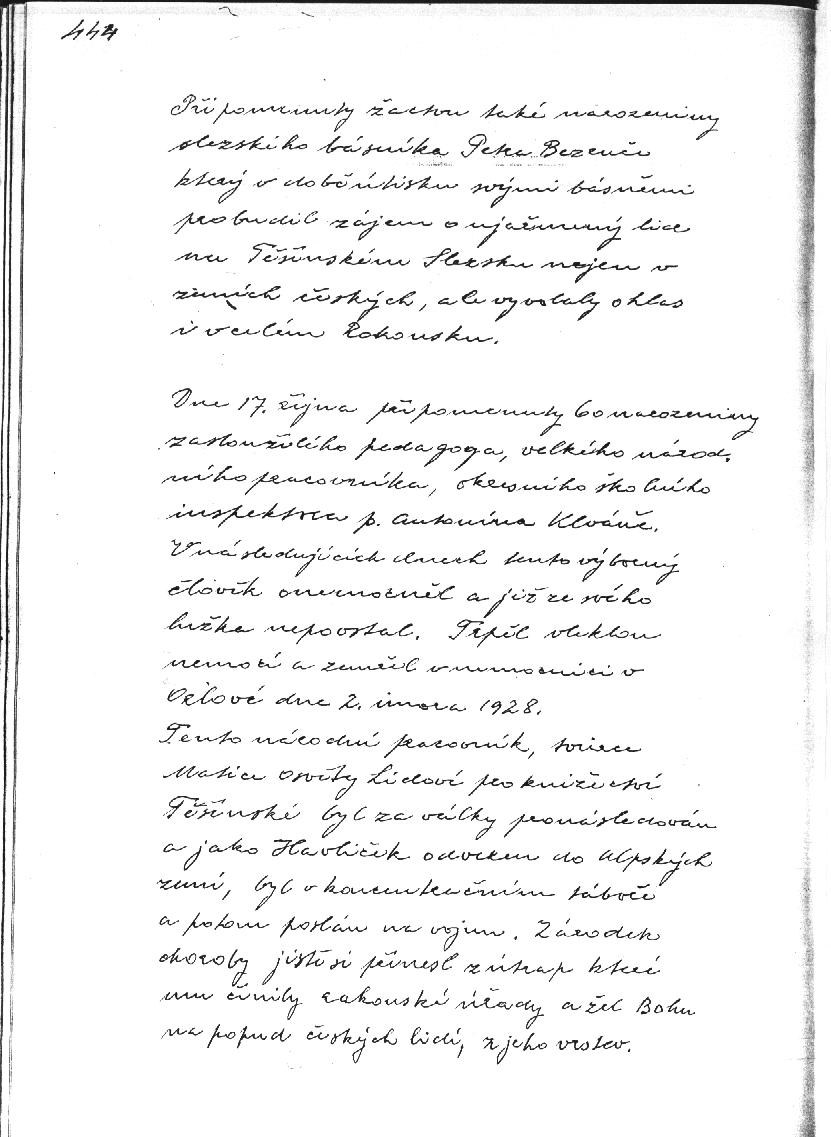 444
Připomenuty žactvu také narozeniny
slezského básníka Petra Bezruče
který v době útisku svými básněmi
probudil zájem o ujařmený lid
na Těšínském Slezsku nejen v
zemích českých, ale vyvolaly ohlas
i v celém Rakousku.
Dne 17. října připomenuty 60 narozeniny
zasloužilého pedagoga, velkého národ-
ního pracovníka, okresního školního
inspektora p. Antonína Klváně.
V následujících dnech tento výborný
člověk onemocněl a již ze svého
lužka nepovstal. Trpěl vleklou
nemocí a zemřel v nemocnici v
Orlové dne 2. února 1928.
Tento národní pracovník, tvůrce
Matice Osvěty Lidové pro knížectví
Těšínské byl za války pronásledován
a jako Havlíček odvezen do Alpských
zemí, byl v koncentračním táboře
a potom poslán na vojnu. Zárodek
choroby jistě si přinesl z útrap které
mu činily rakouské úřady a žel Bohu
na popud českých lidí, z jeho vrstev.